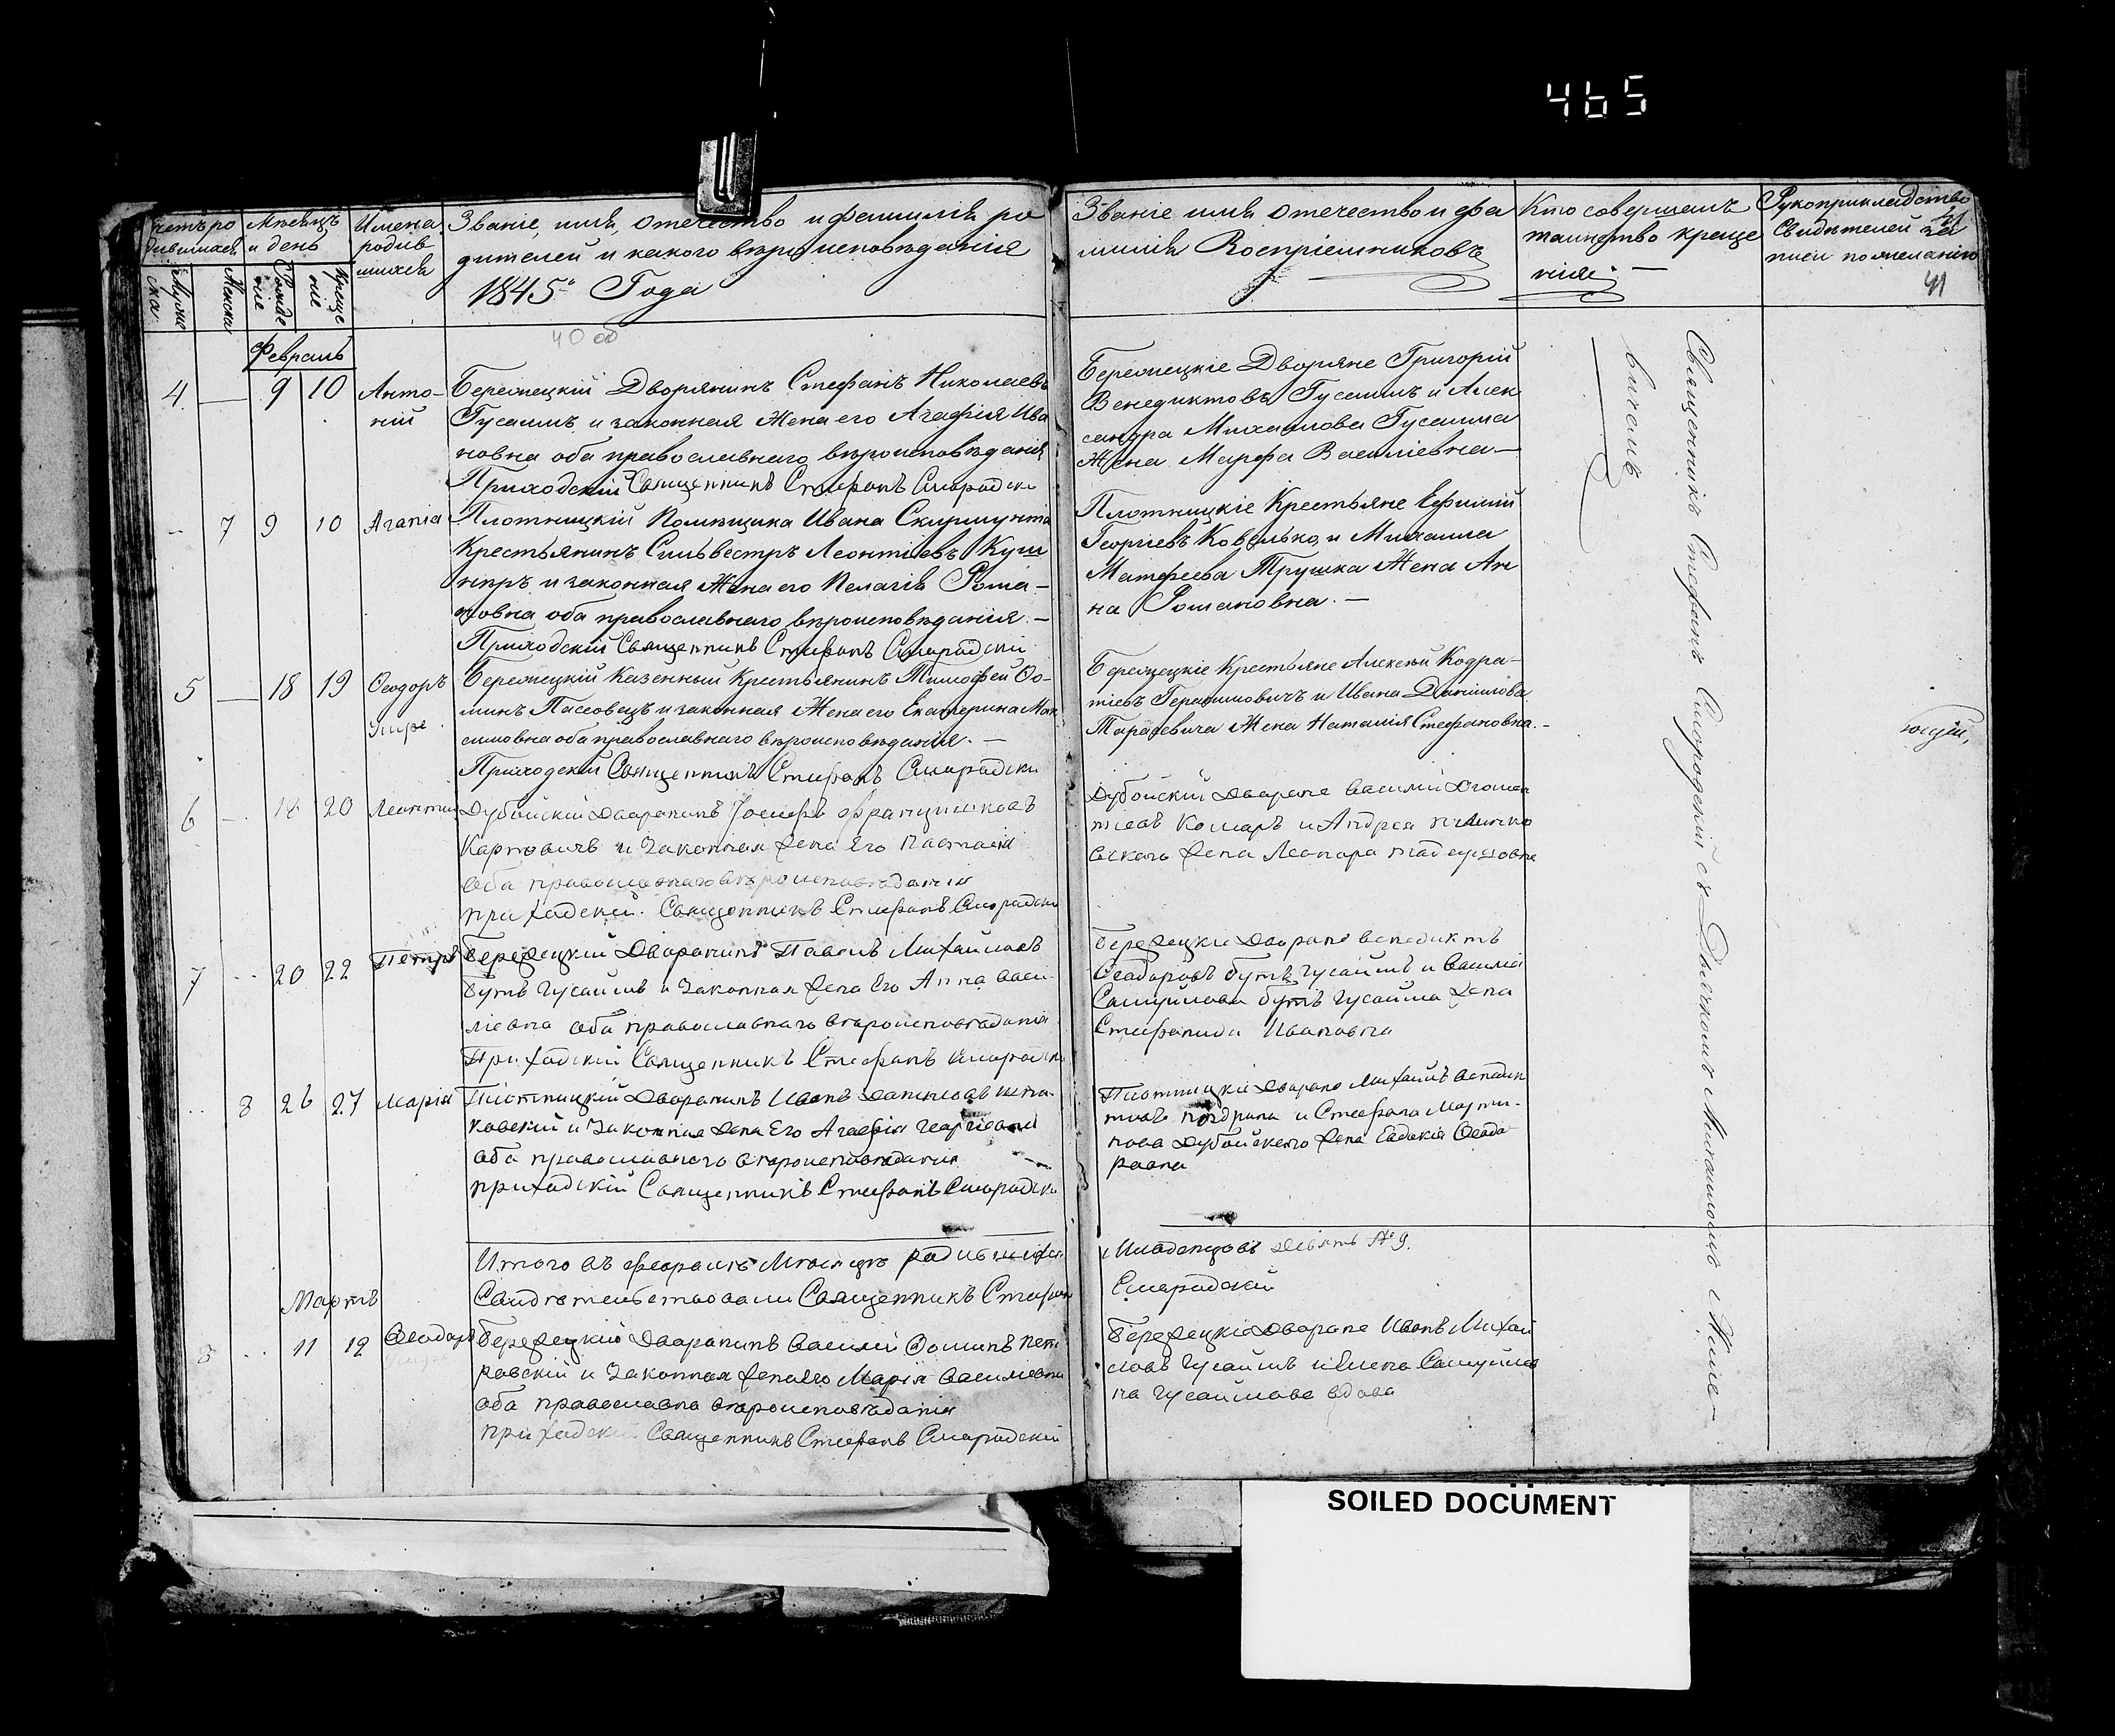 465
Счетъ ро
дившихся
Мѣсяцъ
и день
Имена
родив
шихся
Званіе, имя, отечество и фамилія ро
дителей и какого вѣроисповѣданія
1845 Года
Званіе имя отечество и фа
милія Воспріемниковъ
Кто совершалъ
таинство креще
нія
Рукоприкладство
Свидѣтелей за
писи по желанію
41
41
Муже
ска
Женска
Рожде
ніе
Креще
ніе
40 об
Февраль
4 — 9 10 Анто-
ній
Бережецкій Дворянинъ Стефанъ Николаевъ
Гусаимъ и законная Жена его Агафія Ива
новна оба православнаго вѣроисповѣданія
Приходскій Священникъ Стефанъ Смородски
Бережецкіе Дворяне Григорій
Венедиктовъ Гусаимъ и Алек
сандра Михаилова Гусаима
Жена Марфа Василіевна —
- 7 9 10 Агапіа
Плотницкій Помѣщика Ивана Скирмунта
Крестьянинъ Сильвестръ Леонтіевъ Куш
нѣръ и законная Жена его Пелагія Рома-
новна оба православнаго вѣроисповѣданія. —
Приходскій Священникъ Стефанъ Смородски
Плотницкіе Крестьяне Ефимій
Георгіевъ Ковалько, и Михаила
Матфеева Трушка Жена Ан
на Романовна. —
5 — 18 19 Феодоръ
Умре
Бережецкій Казенный Крестьянинъ Тимофей Фо-
минъ Пассовецъ и законная Жена его Екатерина Мак
симовна оба православнаго вѣроисповѣданія. —
Приходскій Священникъ Стефанъ Смородски
Бережецкіе Крестьяне Алексѣй Кодра-
тіевъ Герасимовичъ и Ивана Даніилова
Тарасевича Жена Наталія Стефановна. -
6 - 18 20 Леонтій
Дубойскій Дваранинъ Іосифъ Францишковъ
Карповичъ и Законная Жена Его Настасія
оба православнаго вѣроисповѣданія
прихадскій Священникъ Стефанъ Смородски
Дубойскій Дваране Василий
Комаръ и Андрея
Жена Леонара
7 -- 20 22 Петръ
Бережецкій Дваранинъ Павелъ Михайловъ
Бутъ Гусаимъ и Законная Жена Его Анна Васи
ліевна оба православнаго вѣроисповѣданія
Прихадскій Священникъ Стефанъ Смородски
Бережецкіе Дваране Венедиктъ
Феадаровъ Бутъ Гусаимъ и Василія
Самуйлова Бутъ Гусаима Жена
Стефанида Ивановна
-- 8 26 27 Марія
Плотницкій Дваранинъ Иванъ Даниловъ
и Законная Жена Его Агафія Георгіевна
оба православнаго вѣроисповѣданія
прихадскій Священникъ Стефанъ Смородски
Плотницкіе Дваране Михайлъ
и Стефана Марти-
нова Дубойскаго Жена Евдакія Феада
равна
Итого въ февралѣ Мѣсяцѣ радившихся
Свидѣтельствовали Священникъ Стефанъ
Младенцовъ Девять № 9.
Смарадскій
Мартъ
8 -- 11 12 Феадоръ
Бережецкій Дваранинъ Василій Фоминъ Пет
равскій и Законная Жена Его Марія Василіевна
оба православна вѣроисповѣданія
прихадскій Священникъ Стефанъ Смарадскій
Бережецкіе Дваране Иванъ Михай
ловъ Гусаимъ и Елена Самуйлов
на Гусаимова вдова
Священникъ Стефанъ Смородскій съ Дьячкомъ Михаиломъ Жиле-
вичемъ
SOILED DOCUMENT